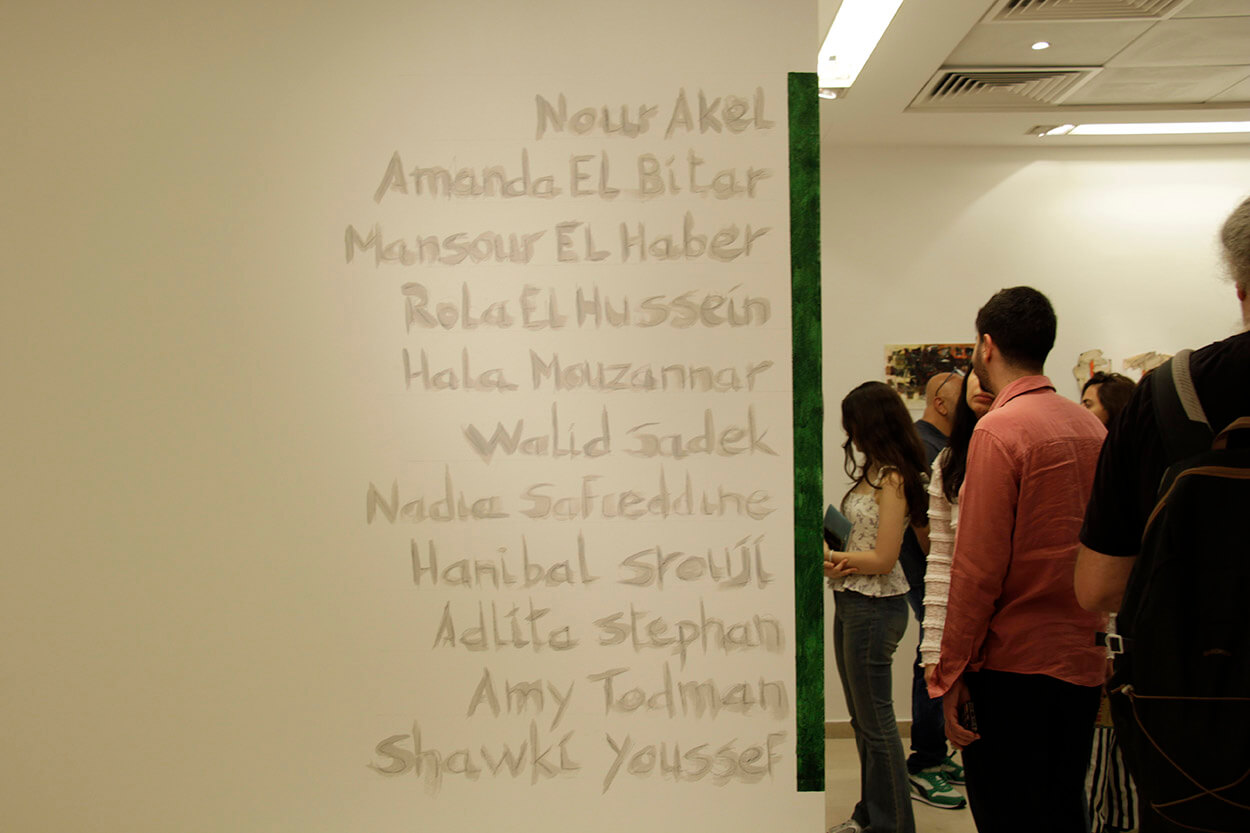 Nour Akel
Amanda El Bitar
Mansour El Haber
Rola El Hussein
Hala Mouzannar
Walid Sadek
Nadia Safieddine
Hanibal Srouji
Adlita Stephan
Amy Todman
Shawki Youssef